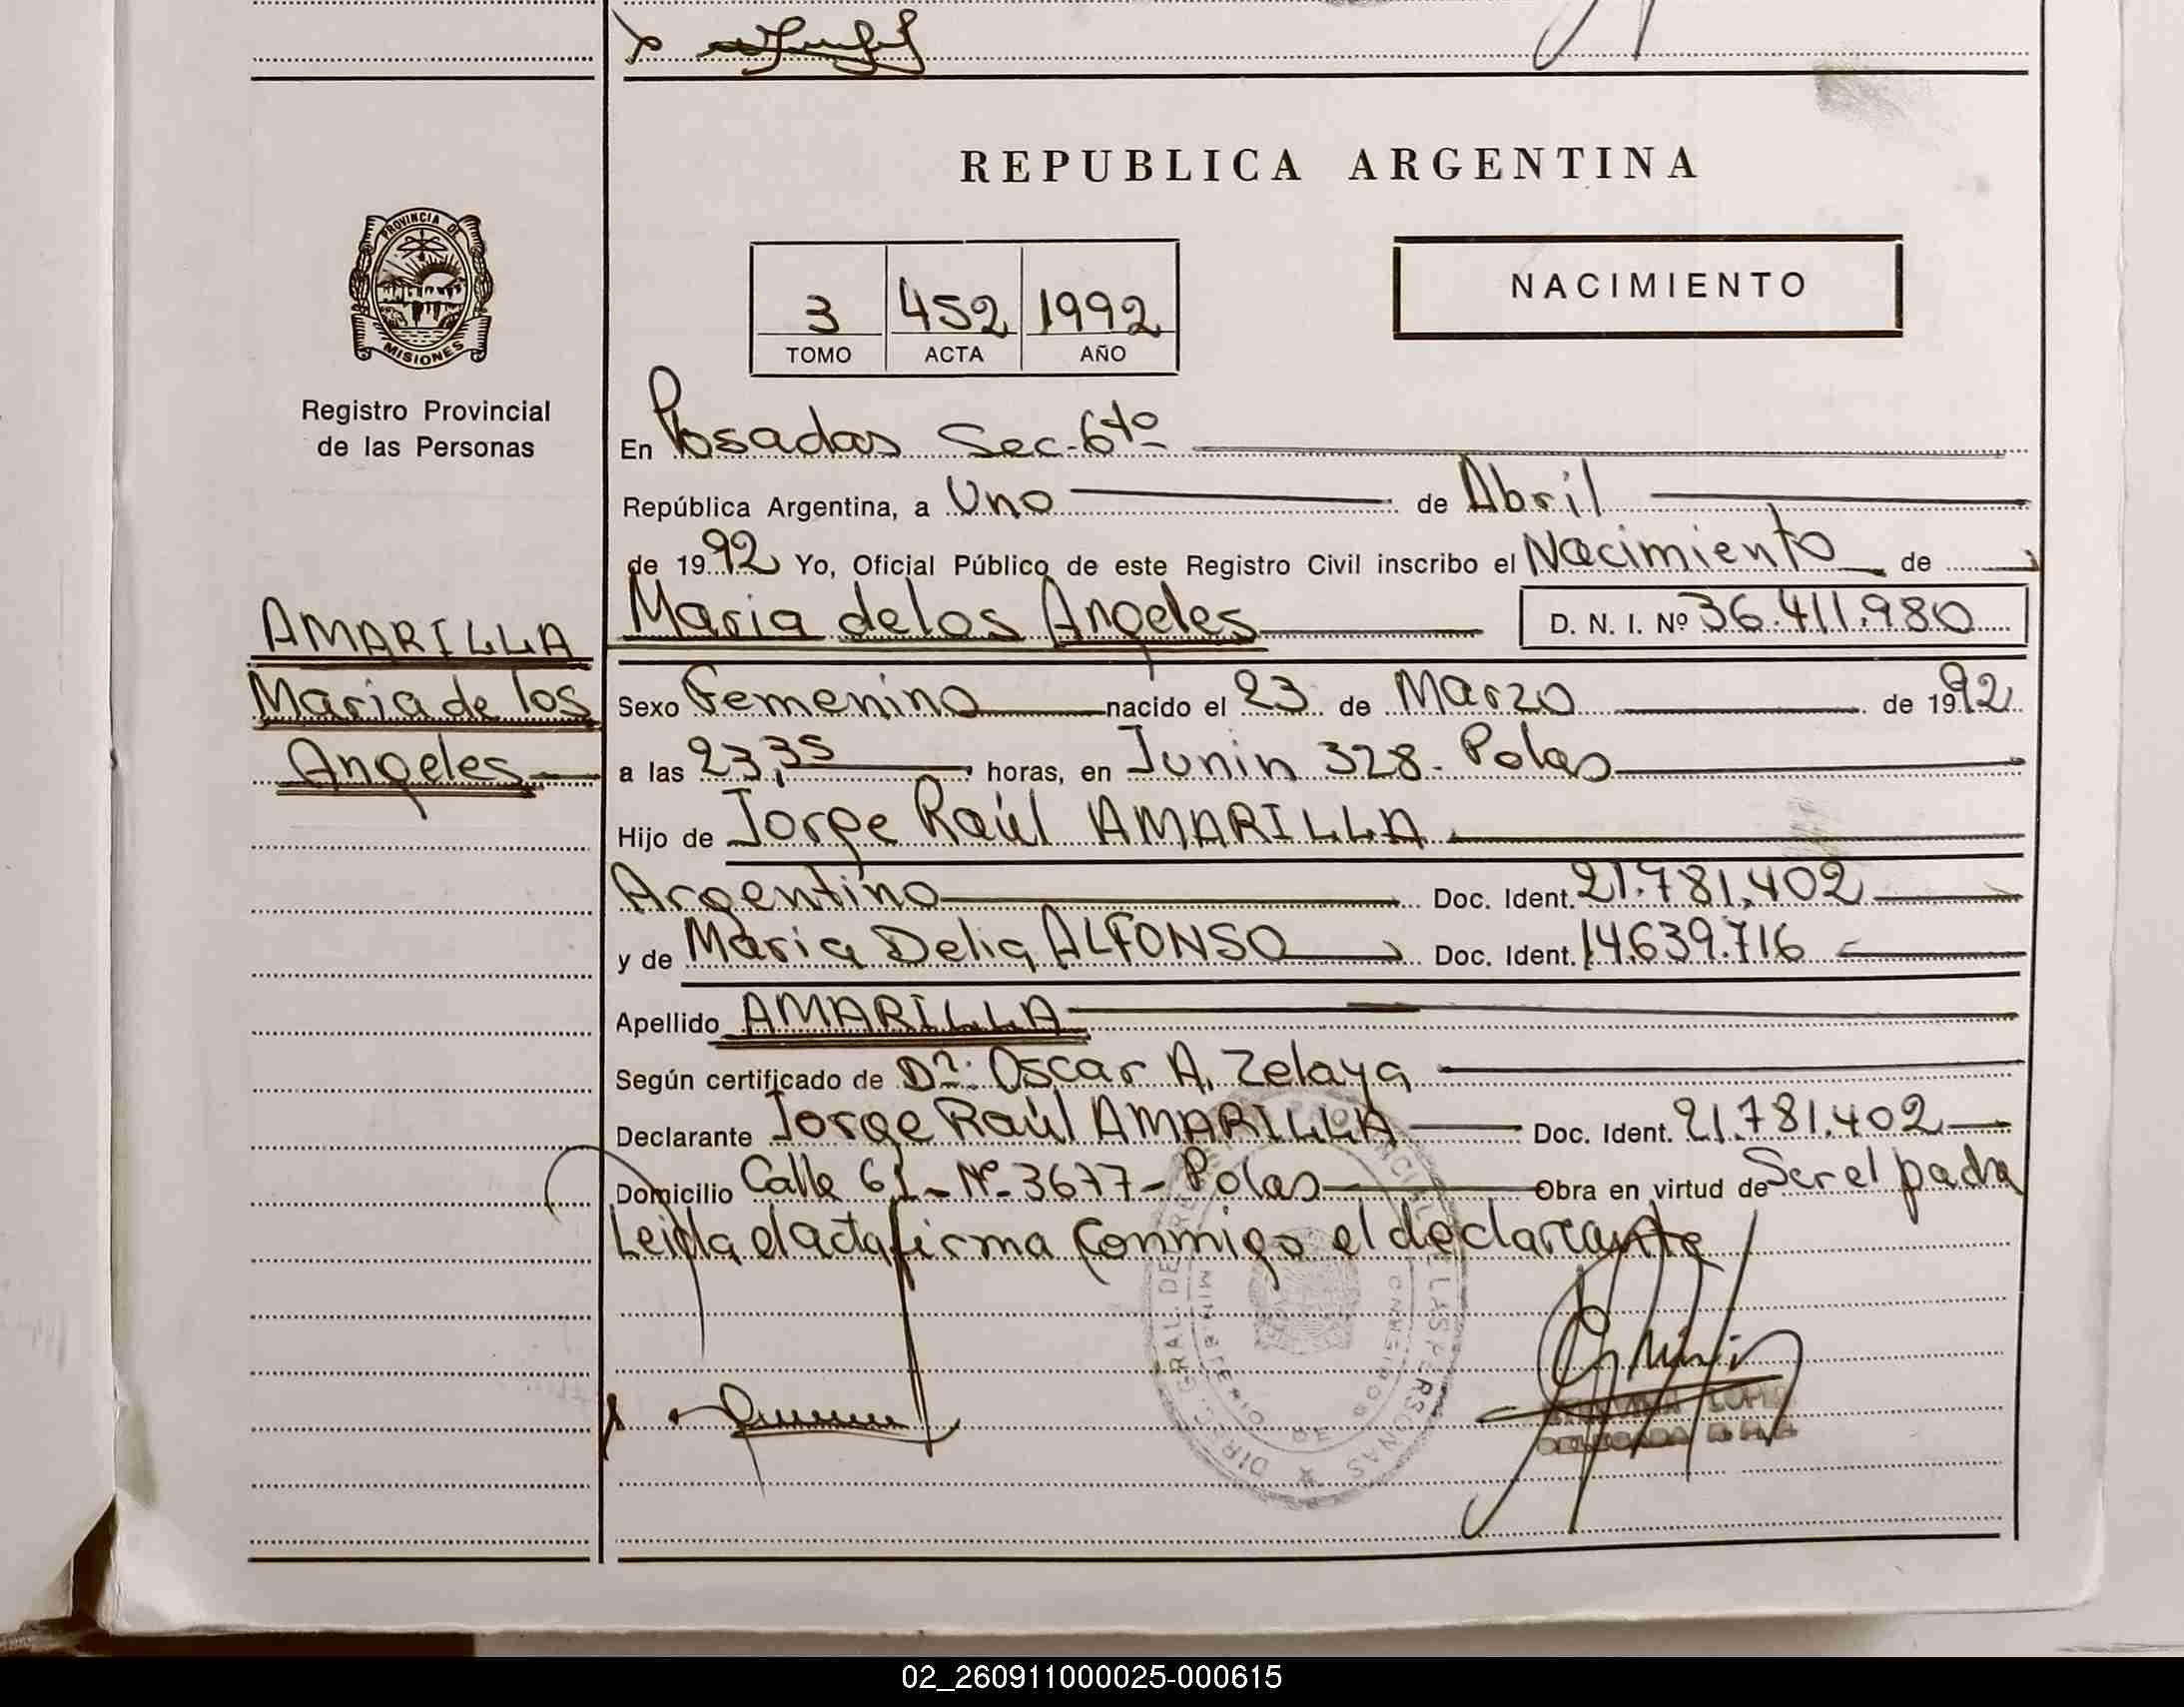 REPUBLICA ARGENTINA
PROVINCIA DE
MISIONES
Registro Provincial
de las Personas
3 452 1992
TOMO ACTA AÑO
NACIMIENTO
En Posadas Sec. 6ta
República Argentina, a Uno de Abril
de 1992 Yo, Oficial Público de este Registro Civil inscribo el Nacimiento de
Maria de los Angeles D. N. I. Nº 36.411.980
AMARILLA
Maria de los
Angeles
Sexo Femenino nacido el 23 de Marzo de 1992
a las 23,35 horas, en Junin 328. Pdas
Hijo de Jorge Raúl AMARILLA
Argentino Doc. Ident. 21.781.402
y de Maria Delia ALFONSO Doc. Ident. 14.639.716
Apellido AMARILLA
Según certificado de Dr. Oscar A. Zelaya
Declarante Jorge Raúl AMARILLA Doc. Ident. 21.781.402
Domicilio Calle 61 - Nº 3677 - Pdas Obra en virtud de Ser el padre
Leida el acta firma conmigo el declarante
DELEGADA R.P.P.
02_260911000025-000615